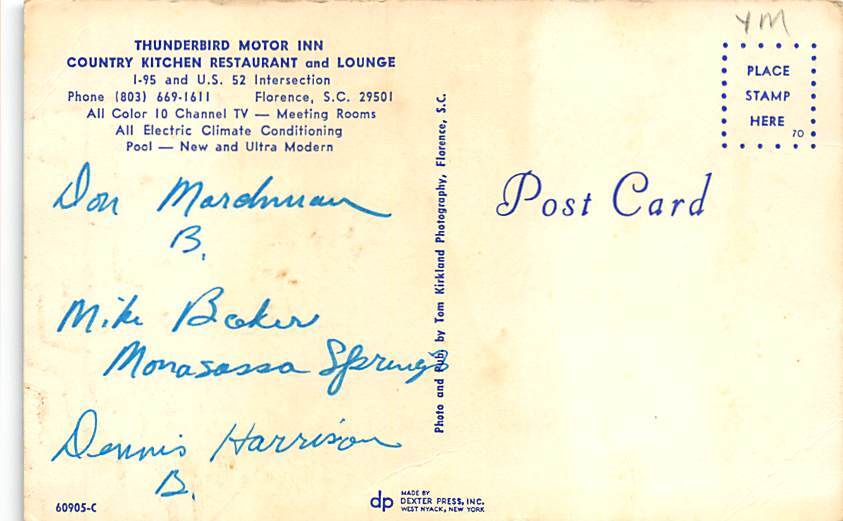 THUNDERBIRD MOTOR INN
COUNTRY KITCHEN RESTAURANT and LOUNGE
I-95 and U.S. 52 Intersection
Phone (803) 669-1611 Florence, S.C. 29501
All Color 10 Channel TV — Meeting Rooms
All Electric Climate Conditioning
Pool — New and Ultra Modern
Don Mardnuan
B.
Mike Baker
Monasassa Springs
Dennis Harrison
B.
60905-C
Photo and Pub. by Tom Kirkland Photography, Florence, S.C.
dp
MADE BY
DEXTER PRESS, INC.
WEST NYACK, NEW YORK
Post Card
YM
PLACE
STAMP
HERE
70